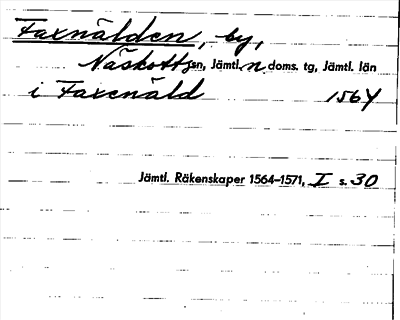 Faxnälden, by,
Näskotts sn, Jämtl. n. doms. tg, Jämtl. län
i Faxenäld 1564
Jämtl. Räkenskaper 1564–1571, I s. 30